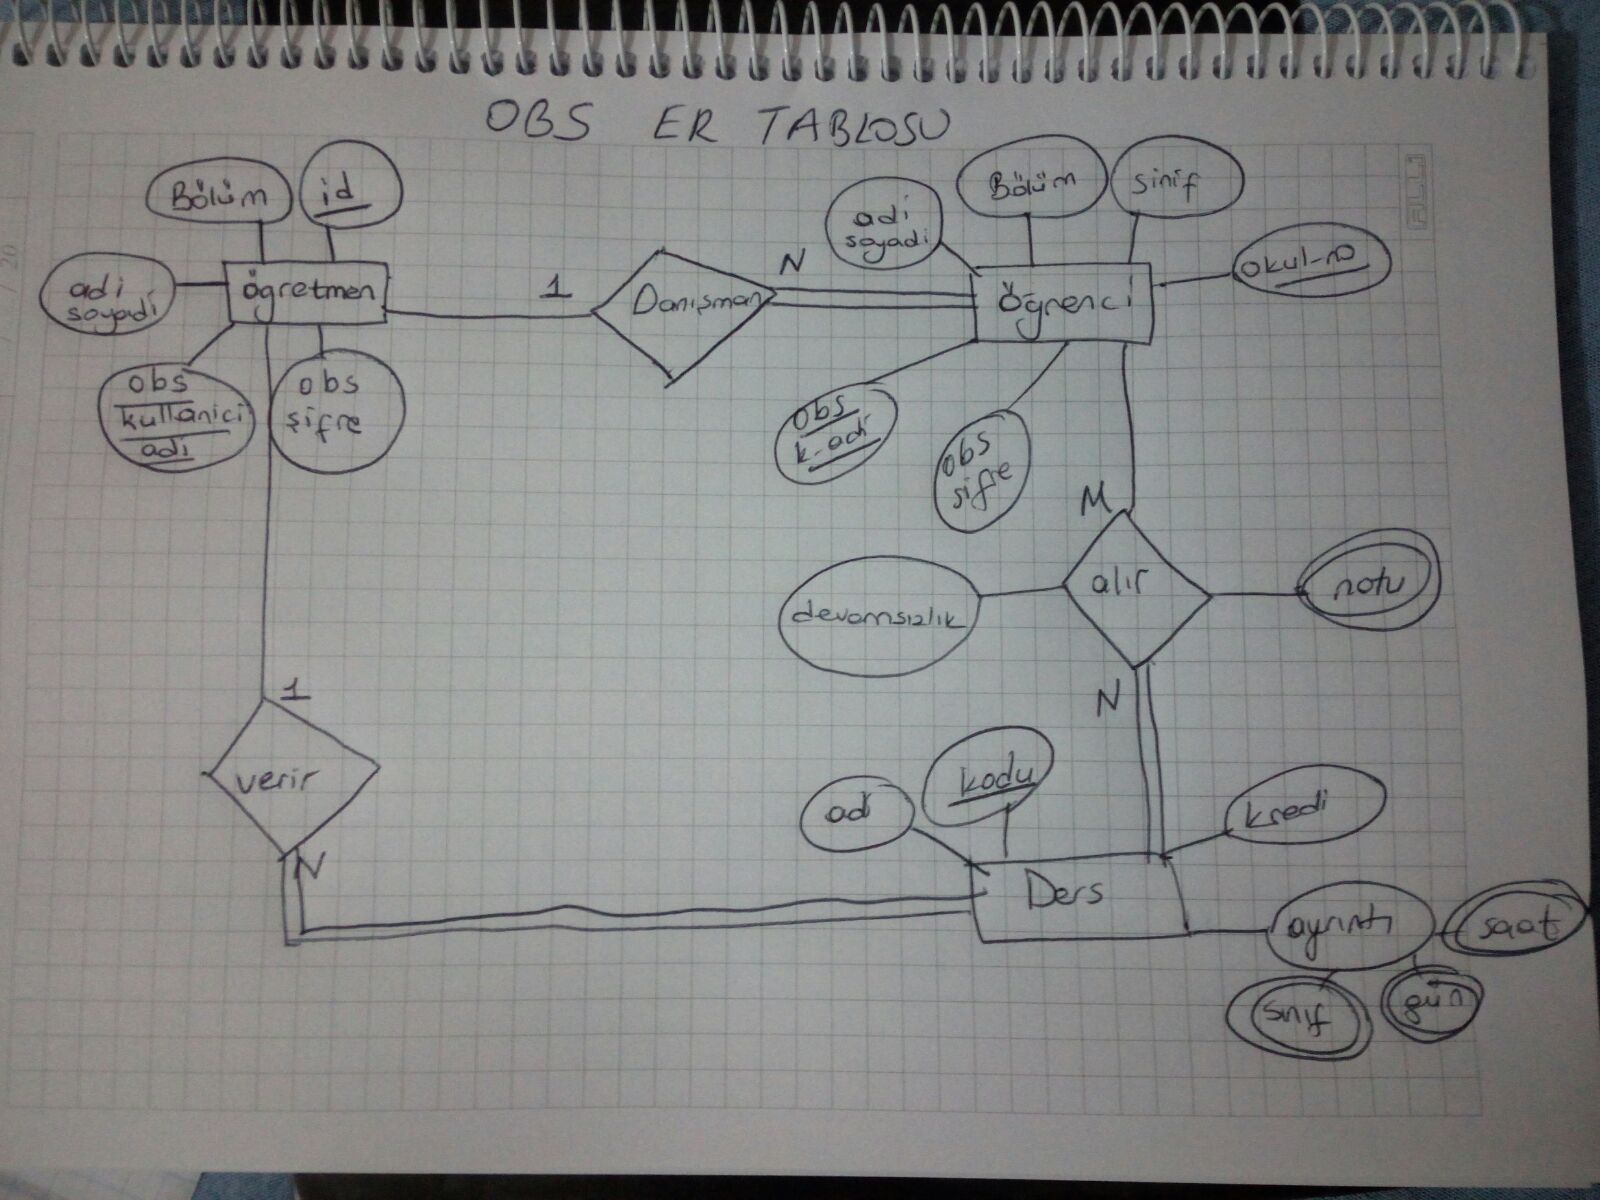 OBS ER TABLOSU
Bölüm
id
adi
soyadi
öğretmen
obs
kullanici
adi
obs
şifre
1
Danışman
N
adi
soyadi
Bölüm
sinif
okul-no
Öğrenci
obs
k-adi
obs
şifre
M
alır
devamsızlık
notu
N
1
verir
N
ad
kodu
kredi
Ders
ayrıntı
saat
sınıf
gün